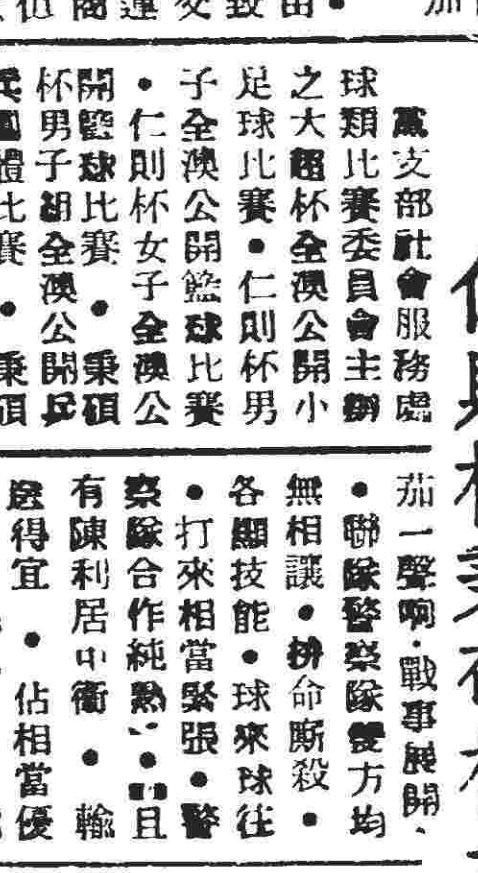 黨支部社會服務處
球類比賽委員會主辦
之大超杯全澳公開小
足球比賽●仁則杯男
子全澳公開籃球比賽
●仁則杯女子全澳公
開籃球比賽●秉碩
杯男子組全澳公開乒
體比賽●秉碩
茄一聲响·戰事展開、
●聯隊警察隊雙方均
無相讓●拚命廝殺●
各顯技能●球來球往
●打來相當緊張●警
察隊合作純熟、●且
有陳利居中衞●輸
送得宜●佔相當優